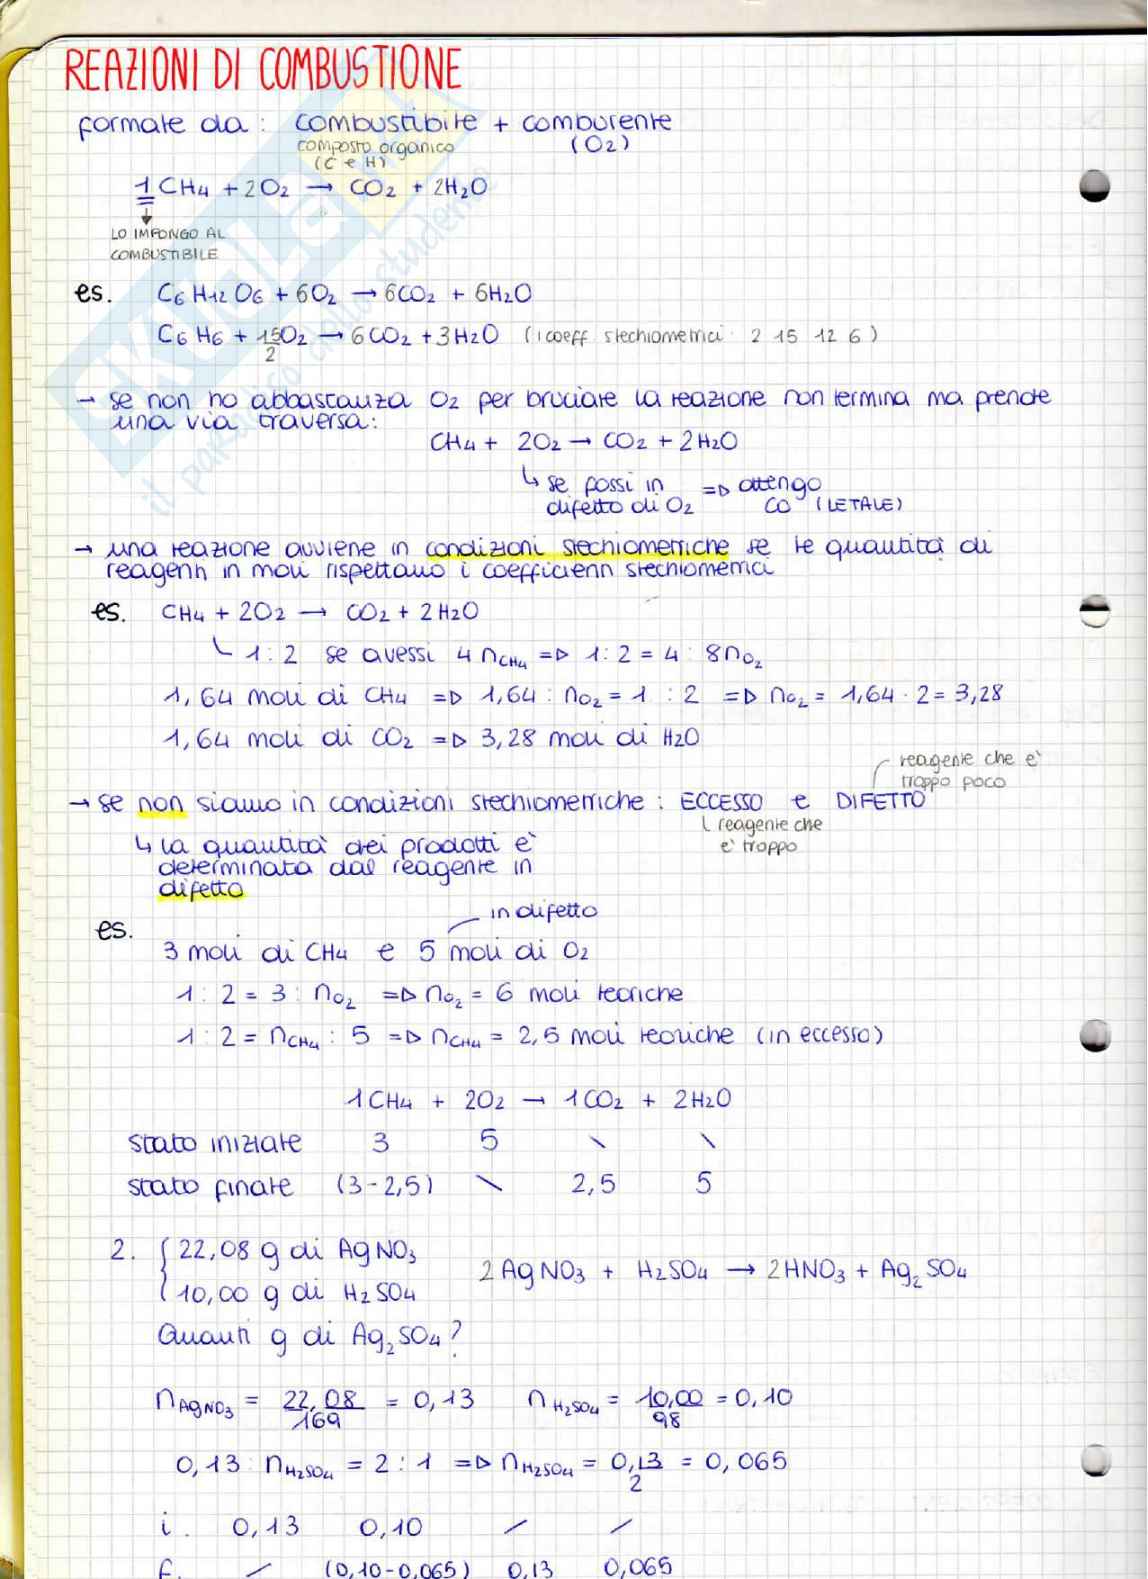 REAZIONI DI COMBUSTIONE
formate da : combustibile + comburente
composto organico (O₂)
(C e H)
1 CH₄ + 2O₂ → CO₂ + 2H₂O
LO IMPONGO AL
COMBUSTIBILE
es. C₆H₁₂O₆ + 6O₂ → 6CO₂ + 6H₂O
C₆H₆ + 15/2 O₂ → 6CO₂ + 3H₂O (i coeff stechiometrici 2 15 12 6)
→ se non ho abbastanza O₂ per bruciare la reazione non termina ma prende
una via traversa:
CH₄ + 2O₂ → CO₂ + 2H₂O
↳ se fossi in ⇒ ottengo
difetto di O₂ CO (LETALE)
→ una reazione avviene in condizioni stechiometriche se le quantità di
reagenti in moli rispettano i coefficienti stechiometrici
es. CH₄ + 2O₂ → CO₂ + 2H₂O
↳ 1 : 2 se avessi 4 nCH₄ ⇒ 1 : 2 = 4 : 8nO₂
1,64 moli di CH₄ ⇒ 1,64 : nO₂ = 1 : 2 ⇒ nO₂ = 1,64 · 2 = 3,28
1,64 moli di CO₂ ⇒ 3,28 moli di H₂O
reagente che è
troppo poco
→ se non siamo in condizioni stechiometriche : ECCESSO e DIFETTO
reagente che
è troppo
↳ la quantità dei prodotti è
determinata dal reagente in
difetto
in difetto
es.
3 moli di CH₄ e 5 moli di O₂
1 : 2 = 3 : nO₂ ⇒ nO₂ = 6 moli teoriche
1 : 2 = nCH₄ : 5 ⇒ nCH₄ = 2,5 moli teoriche (in eccesso)
1CH₄ + 2O₂ → 1CO₂ + 2H₂O
stato iniziale 3 5 \ \
stato finale (3-2,5) \ 2,5 5
2. { 22,08 g di AgNO₃
10,00 g di H₂SO₄
2AgNO₃ + H₂SO₄ → 2HNO₃ + Ag₂SO₄
Quanti g di Ag₂SO₄?
nAgNO₃ = 22,08/169 = 0,13 nH₂SO₄ = 10,00/98 = 0,10
0,13 : nH₂SO₄ = 2 : 1 ⇒ nH₂SO₄ = 0,13/2 = 0,065
i. 0,13 0,10 / /
f. / (0,10-0,065) 0,13 0,065